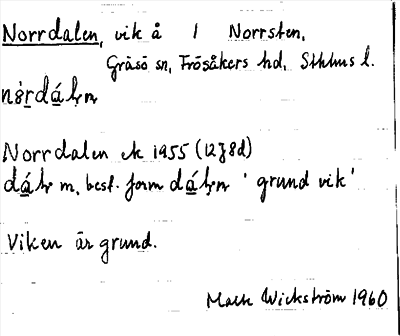 Norrdalen, vik å 1 Norrsten,
Gräsö sn, Frösåkers hd, Sthlms l.
Norrdalen ek 1955 (12J8d)
m, best. form ' grund vik '
Viken är grund.
Mats Wickström 1960